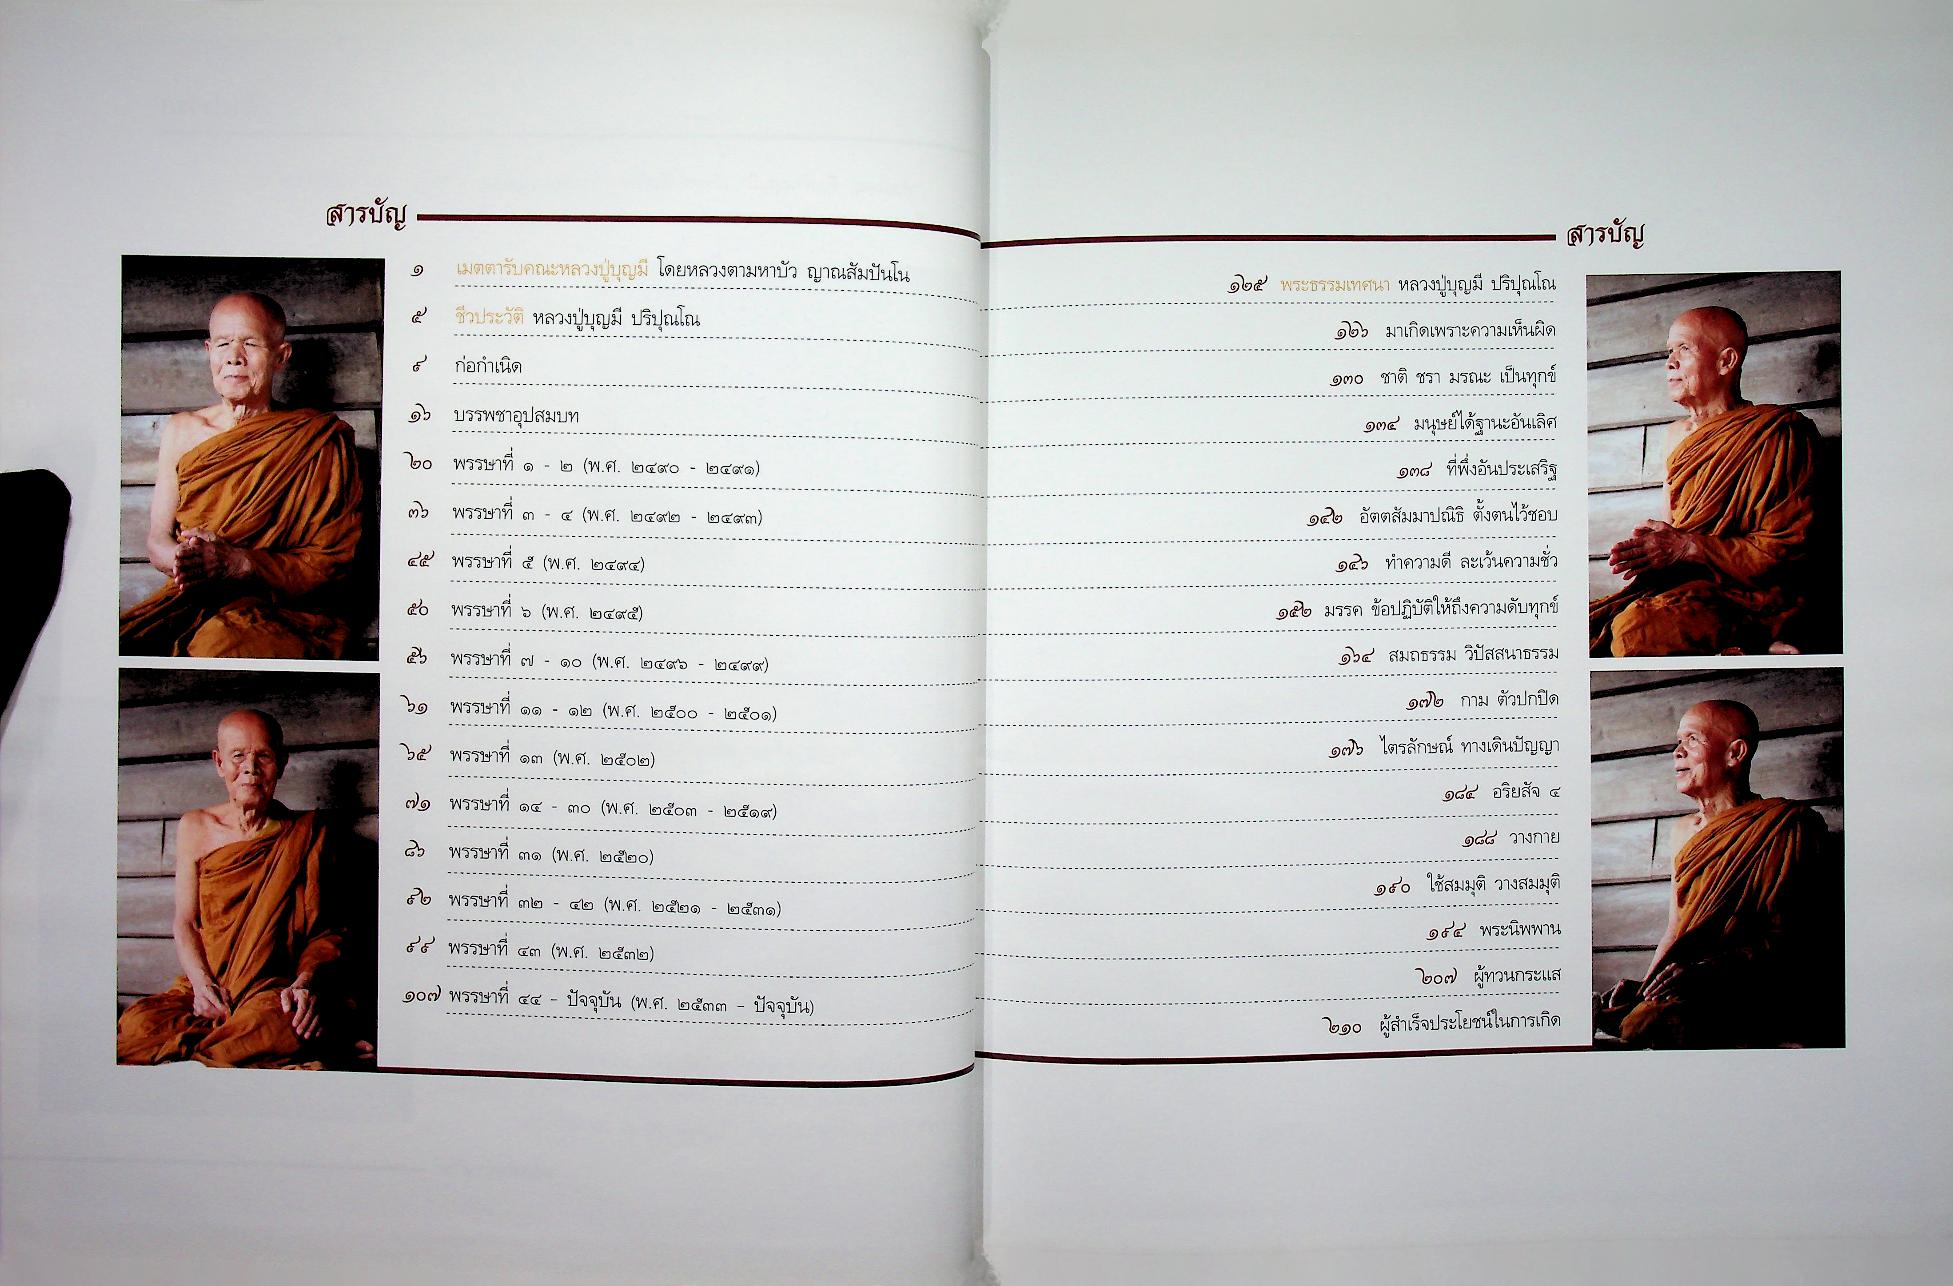 สารบัญ
๑ เมตตารับคณะหลวงปู่บุญมี โดยหลวงตามหาบัว ญาณสัมปันโน
๕ ชีวประวัติ หลวงปู่บุญมี ปริปุณโณ
๙ ก่อกำเนิด
๑๖ บรรพชาอุปสมบท
๒๐ พรรษาที่ ๑ - ๒ (พ.ศ. ๒๔๙๐ - ๒๔๙๑)
๓๖ พรรษาที่ ๓ - ๔ (พ.ศ. ๒๔๙๒ - ๒๔๙๓)
๔๕ พรรษาที่ ๕ (พ.ศ. ๒๔๙๔)
๕๐ พรรษาที่ ๖ (พ.ศ. ๒๔๙๕)
๕๖ พรรษาที่ ๗ - ๑๐ (พ.ศ. ๒๔๙๖ - ๒๔๙๙)
๖๑ พรรษาที่ ๑๑ - ๑๒ (พ.ศ. ๒๕๐๐ - ๒๕๐๑)
๖๕ พรรษาที่ ๑๓ (พ.ศ. ๒๕๐๒)
๗๑ พรรษาที่ ๑๔ - ๓๐ (พ.ศ. ๒๕๐๓ - ๒๕๑๙)
๘๖ พรรษาที่ ๓๑ (พ.ศ. ๒๕๒๐)
๙๒ พรรษาที่ ๓๒ - ๔๒ (พ.ศ. ๒๕๒๑ - ๒๕๓๑)
๙๙ พรรษาที่ ๔๓ (พ.ศ. ๒๕๓๒)
๑๐๗ พรรษาที่ ๔๔ - ปัจจุบัน (พ.ศ. ๒๕๓๓ - ปัจจุบัน)
สารบัญ
๑๒๕ พระธรรมเทศนา หลวงปู่บุญมี ปริปุณโณ
๑๒๖ มาเกิดเพราะความเห็นผิด
๑๓๐ ชาติ ชรา มรณะ เป็นทุกข์
๑๓๔ มนุษย์ได้ฐานะอันเลิศ
๑๓๘ ที่พึ่งอันประเสริฐ
๑๔๒ อัตตสัมมาปณิธิ ตั้งตนไว้ชอบ
๑๔๖ ทำความดี ละเว้นความชั่ว
๑๕๒ มรรค ข้อปฏิบัติให้ถึงความดับทุกข์
๑๖๔ สมถธรรม วิปัสสนาธรรม
๑๗๒ กาม ตัวปกปิด
๑๗๖ ไตรลักษณ์ ทางเดินปัญญา
๑๘๔ อริยสัจ ๔
๑๘๘ วางกาย
๑๙๐ ใช้สมมุติ วางสมมุติ
๑๙๔ พระนิพพาน
๒๐๗ ผู้ทวนกระแส
๒๑๐ ผู้สำเร็จประโยชน์ในการเกิด